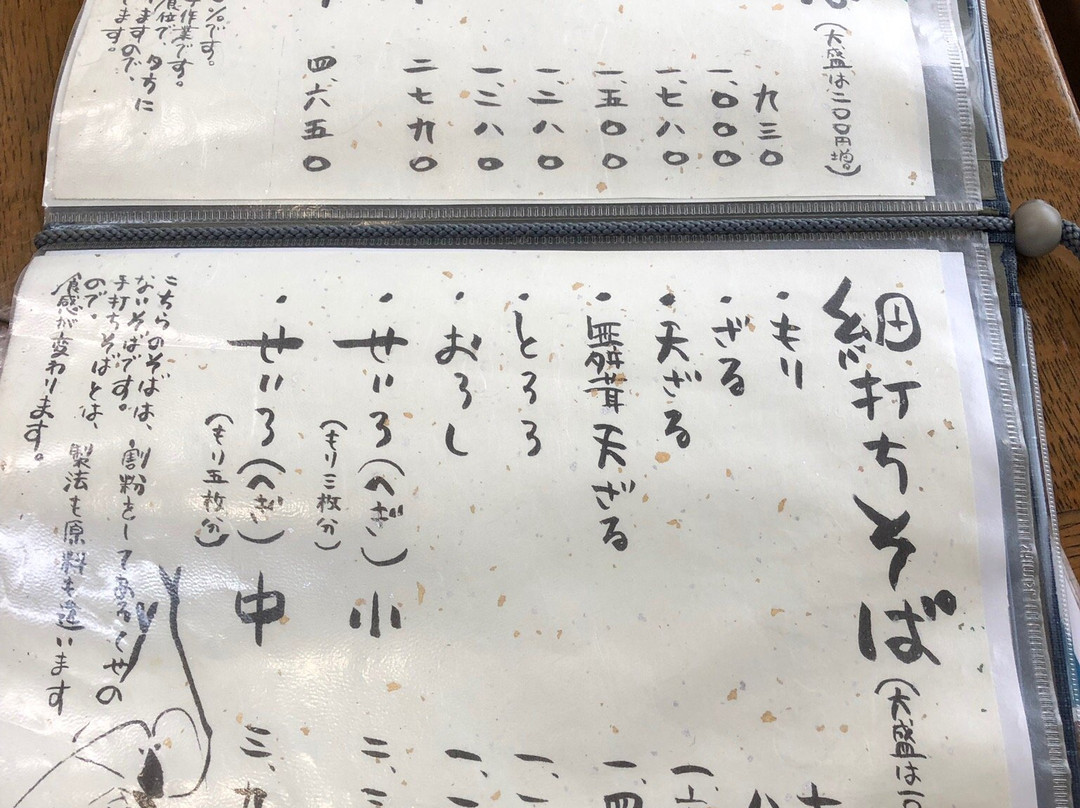 (大盛は二〇〇円増)
九三〇
一、〇〇〇
一、七八〇
一、五〇〇
一、二八〇
一、二八〇
二、七九〇
四、六五〇
%です。
手作業です。
夕方に
ますので、
ます。
細打ちそば(大盛は二〇
・もり
・ざる
・天ざる
・舞茸天ざる 一、四
・とろろ 一、
・おろし 一、
・せいろ(へぎ)小 二、
(もり三枚分)
・せいろ(へぎ)中 三、九
(もり五枚分)
こちらのそばは、割粉をしてあるくせの
ないそばです。
手打ちそばとは、製法も原料も違います
ので、
食感が変わります。